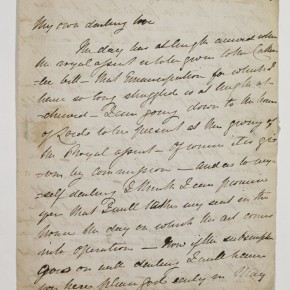 My own darling love
The day has at length arrived when
the royal assent is to be given to the Catho-
-lic bill - That Emancipation for which I
have so long struggled is at length at-
-chieved - I am going down to the house
of Lords to be present at the giving of
the Royal assent - of course it is gi-
-ven by commission - and as to my-
-self darling I think I can promise
you that I will take my seat in the
house the day on which the act comes
into operation - Now if the subscription
goes on well darling I will have
you here please god early in May